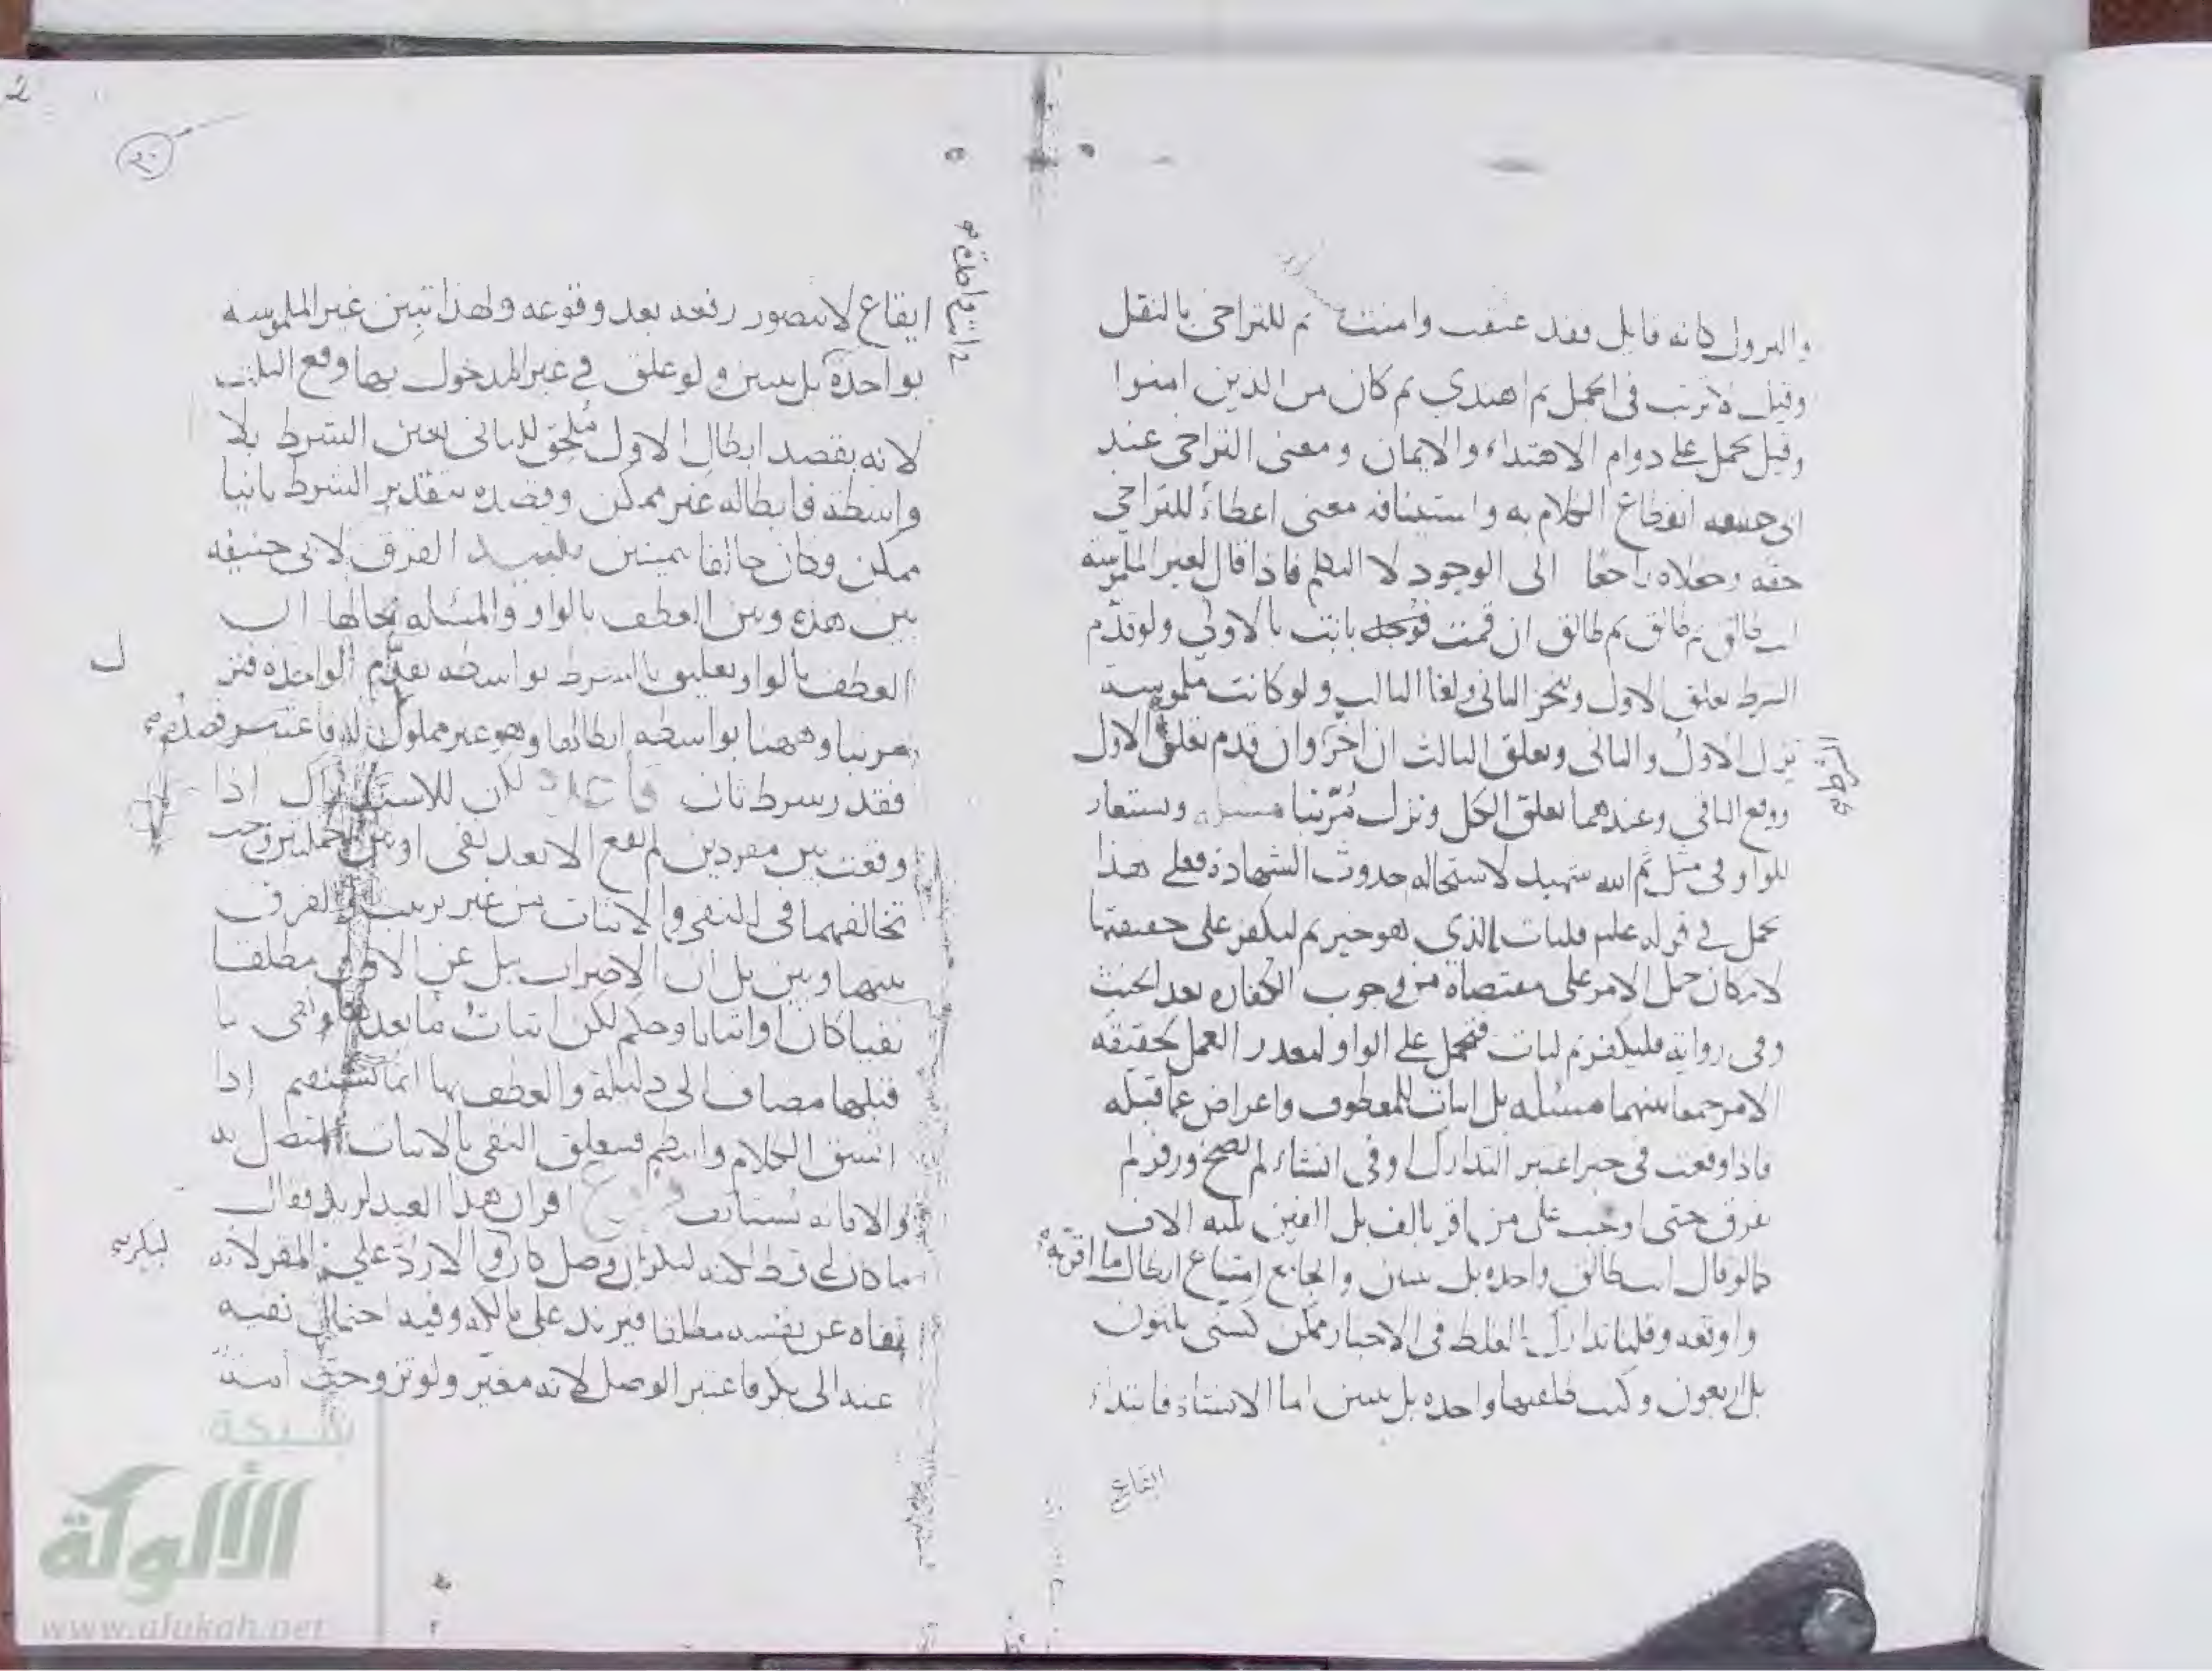 والنزول كانه قايل فقد عتقت وامنت ثم للتراخي بالنقل
وقيل لا ترتب في الجمل ثم اهتدي ثم كان من الذين امنوا
وقيل يحمل على دوام الاهتداء والايمان ومعنى التراخي عند
ابي حنيفه انقطاع الكلام به واستينافه معنى اعطاء للتراخي
حقه وجعلاه راجعا الى الوجود لا التكلم فاذا قال لغير الملموسة
انت طالق ثم طالق ثم طالق ان قمت بانت بالاولي ولو تقدم
الشرط تعلق الاول وتنجز الثاني ولغا الثالث ولو كانت ملموسة
نزل الاول والثاني وتعلق الثالث ان اخر وان قدم تعلق الاول
ووقع الباقي وعندهما تعلق الكل ونزل مرتبا مسئله وتستعار
للواو في مثل ثم الله شهيد لاستحاله حدوث الشهادة فعلى هذا
يحمل في قوله عليه فليات بالذي هو خير ثم ليكفر على حقيقتها
لامكان حمل الامر على مقتضاه من وجوب الكفاره بعد الحنث
وفي رواية فليكفر ثم ليات فيحمل على الواو لتعذر العمل بحقيقه
الامر جمعا بينهما مسئله بل اثبات للمعطوف واعراض عما قبله
فاذا وقعت في خبر اعتبر التدارك وفي انشاء لم يصح وزفر لم
يفرق حتى اوجب على من اقر بالف بل الفين ثلثه الاف
كما لو قال انت طالق واحده بل ثنتين والجامع امتناع ابطال ما اقر به
واوقعه وقلنا تدارك الغلط في الاخبار ممكن كسني ثلثون
بل اربعون وكنت طلقتها واحده بل ثنتين اما الانشاء فابتداء
ايقاع
ايقاع لا يتصور رفعه بعد وقوعه ولهذا تبين غير الملموسه
بواحدة بل ثنتين ولو علق في غير المدخول بها وقع الثلث
لانه بقصد ابطال الاول ملحق للثاني بعين الشرط بلا
واسطة فابطاله غير ممكن وقصده بتقدير الشرط ثانيا
ممكن وكان حالفا بيمينين الفرق لابي حنيفه
بين هذه وبين العطف بالواو والمسئله بحالها ان
العطف بالواو تعليق بالشرط بواسطه تقدم الواحدة فنزل
مرتبا وههنا بواسطه ابطالها وهو غير مملوك له فاعتبر قصده
فقدر شرط ثان قاعدة لكن للاستدراك اذا
وقعت بين مفردين لم تقع الا بعد نفي او بين جملتين وجب
تخالفهما في النفي والاثبات من غير ترتيب والفرق
بينها وبين بل ان الاضراب ببل عن الاول مطلقا
نفيا كان او اثباتا وحكم لكن اثبات ما بعدها ونفي ما
قبلها مضاف الى دليله والعطف بها انما يستقيم اذا
اتسق الكلام وانتظم فتعلق النفي بالاثبات المتصل به
والا فانه يستانف فروع اقر ان هذا العبد لزيد فقال
ما كان لي قط لكنه لبكر ان وصل كان والا رد على المقر لانه
نفاه عن نفسه مطلقا فيرتد على مالكه وفيه احتمال نفيه
عنه الى بكر فاعتبر الوصل لانه مغير ولو تزوجت امة
شبكة
الألوكة
www.alukah.net